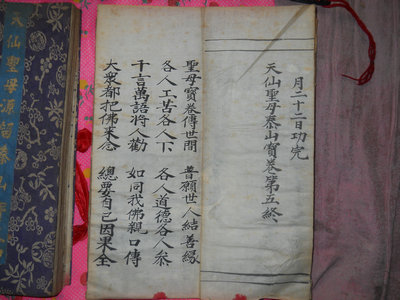 月二十二日功完
天仙聖母泰山寶卷第五終
聖母寶卷傳世間 普願世人結善緣
各人工苦各人下 各人道德各人叅
千言萬語將人勸 如同我佛親口傳
大衆都把佛來念 總要自己因果全
天仙聖母源留泰山